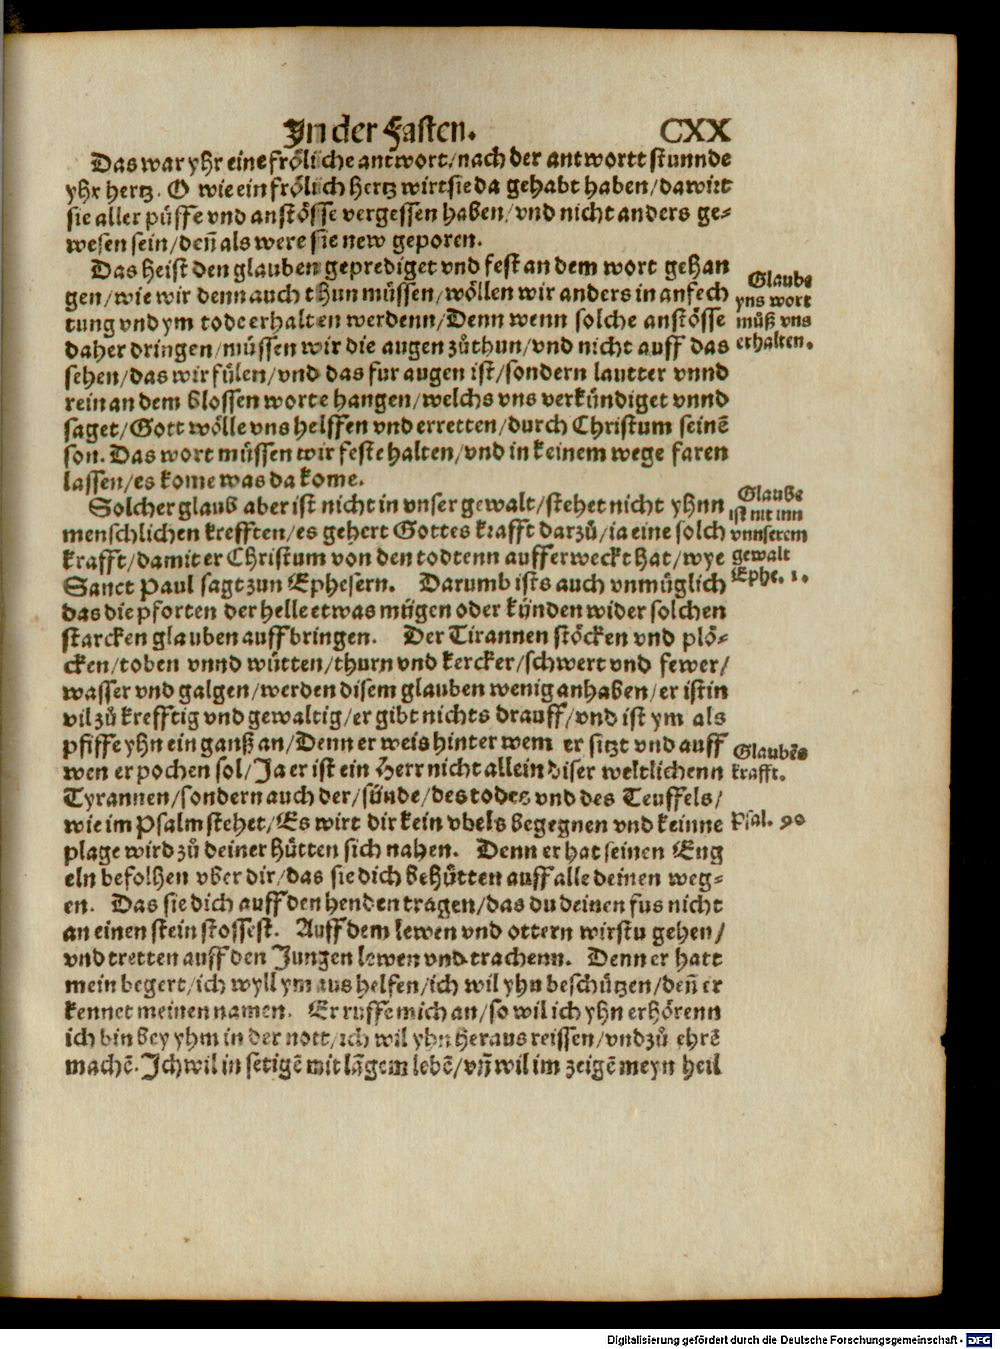 In der Fasten. CXX
Das war yhr eine fröliche antwort/nach der antwortt stunnde
yhr hertz. O wie ein frölich hertz wirt sie da gehabt haben/da wirt
sie aller püffe vnd anstösse vergessen haben/vnd nicht anders ge-
wesen sein/deñ als were sie new geporen.
Das heist den glauben geprediget vnd fest an dem wort gehan
gen/wie wir denn auch thun müssen/wöllen wir anders in anfech
tung vnd ym tode erhalten werdenn/Denn wenn solche anstösse
daher dringen/müssen wir die augen zůthun/vnd nicht auff das
sehen/das wir fülen/vnd das fur augen ist/sondern lautter vnnd
rein an dem blossen worte hangen/welchs vns verkündiget vnnd
saget/Gott wölle vns helffen vnd erretten/durch Christum seinē
son. Das wort müssen wir feste halten/vnd in keinem wege faren
lassen/es kome was da kome.
Glaube
yns wort
müß vns
erhalten.
Solcher glaub aber ist nicht in vnser gewalt/stehet nicht yhnn
menschlichen krefften/es gehert Gottes krafft darzů/ia eine solch
krafft/damit er Christum von den todtenn aufferweckt hat/wye
Sanct Paul sagt zun Ephesern. Darumb ists auch vnmüglich
das die pforten der helle etwas mügen oder künden wider solchen
starcken glauben auffbringen. Der Tirannen stöcken vnd plö-
cken/toben vnnd wütten/thurn vnd kercker/schwert vnd fewer/
wasser vnd galgen/werden disem glauben wenig anhaben/er ist in
vil zů krefftig vnd gewaltig/er gibt nichts drauff/vnd ist ym als
pfiffe yhn ein ganß an/Denn er weis hinter wem er sitzt vnd auff
wen er pochen sol/Ja er ist ein Herr nicht allein diser weltlichenn
Tyrannen/sondern auch der/sünde/des todes vnd des Teuffels/
wie im Psalm stehet/Es wirt dir kein vbels begegnen vnd keinne
plage wird zů deiner hütten sich nahen. Denn er hat seinen Eng
eln befolhen vber dir/das sie dich behütten auff alle deinen weg-
en. Das sie dich auff den henden tragen/das du deinen fus nicht
an einen stein stossest. Auff dem lewen vnd ottern wirstu gehen/
vnd tretten auff den Jungen lewen vnd trachenn. Denn er hatt
mein begert/ich wyll ym aus helfen/ich wil yhn beschützen/deñ er
kennet meinen namen. Er ruffe mich an/so wil ich yhn erhörenn
ich bin bey yhm in der nott/ich wil yhn heraus reissen/vnd zů ehrē
machē. Ich wil in setigē mit lāgem lebē/vñ wil im zeigē meyn heil
Glaube
ist nit inn
vnnserem
gewalt
Ephe. 1.
Glaubēs
krafft.
Psal. 90
Digitalisierung gefördert durch die Deutsche Forschungsgemeinschaft - DFG